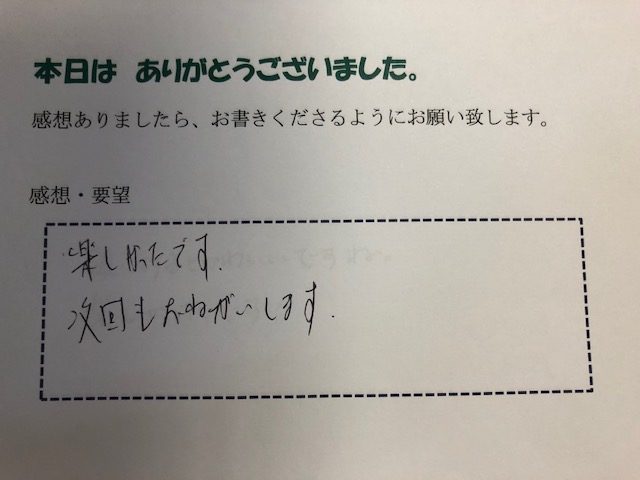 本日は ありがとうございました。
感想ありましたら、お書きくださるようにお願い致します。
感想・要望
楽しかったです.
次回もおねがいします.